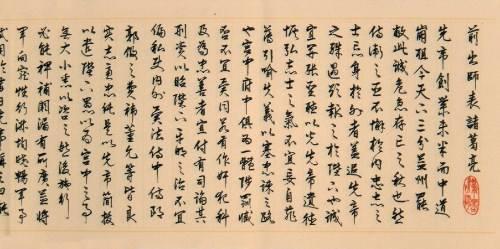 前出師表 諸葛亮
先帝創業未半而中道
崩殂今天下三分益州罷
敝此誠危急存亡之秋也然
侍衛之臣不懈於內忠志之
士忘身於外者蓋追先帝
之殊遇欲報之於陛下也誠
宜開張聖聽以光先帝遺德
恢弘志士之氣不宜妄自菲
薄引喻失義以塞忠諫之路
也宮中府中俱為一體陟罰臧
否不宜異同若有作奸犯科
及為忠善者宜付有司論其
刑賞以昭陛下平明之治不宜
偏私使內外異法侍中侍郎
郭攸之費禕董允等皆良
實志慮忠純是以先帝簡拔
以遺陛下愚以為宮中之事
事無大小悉以咨之然後施行
必能裨補闕漏有所廣益將
軍向寵性行淑均曉暢軍事
試用於昔日先帝稱之曰能